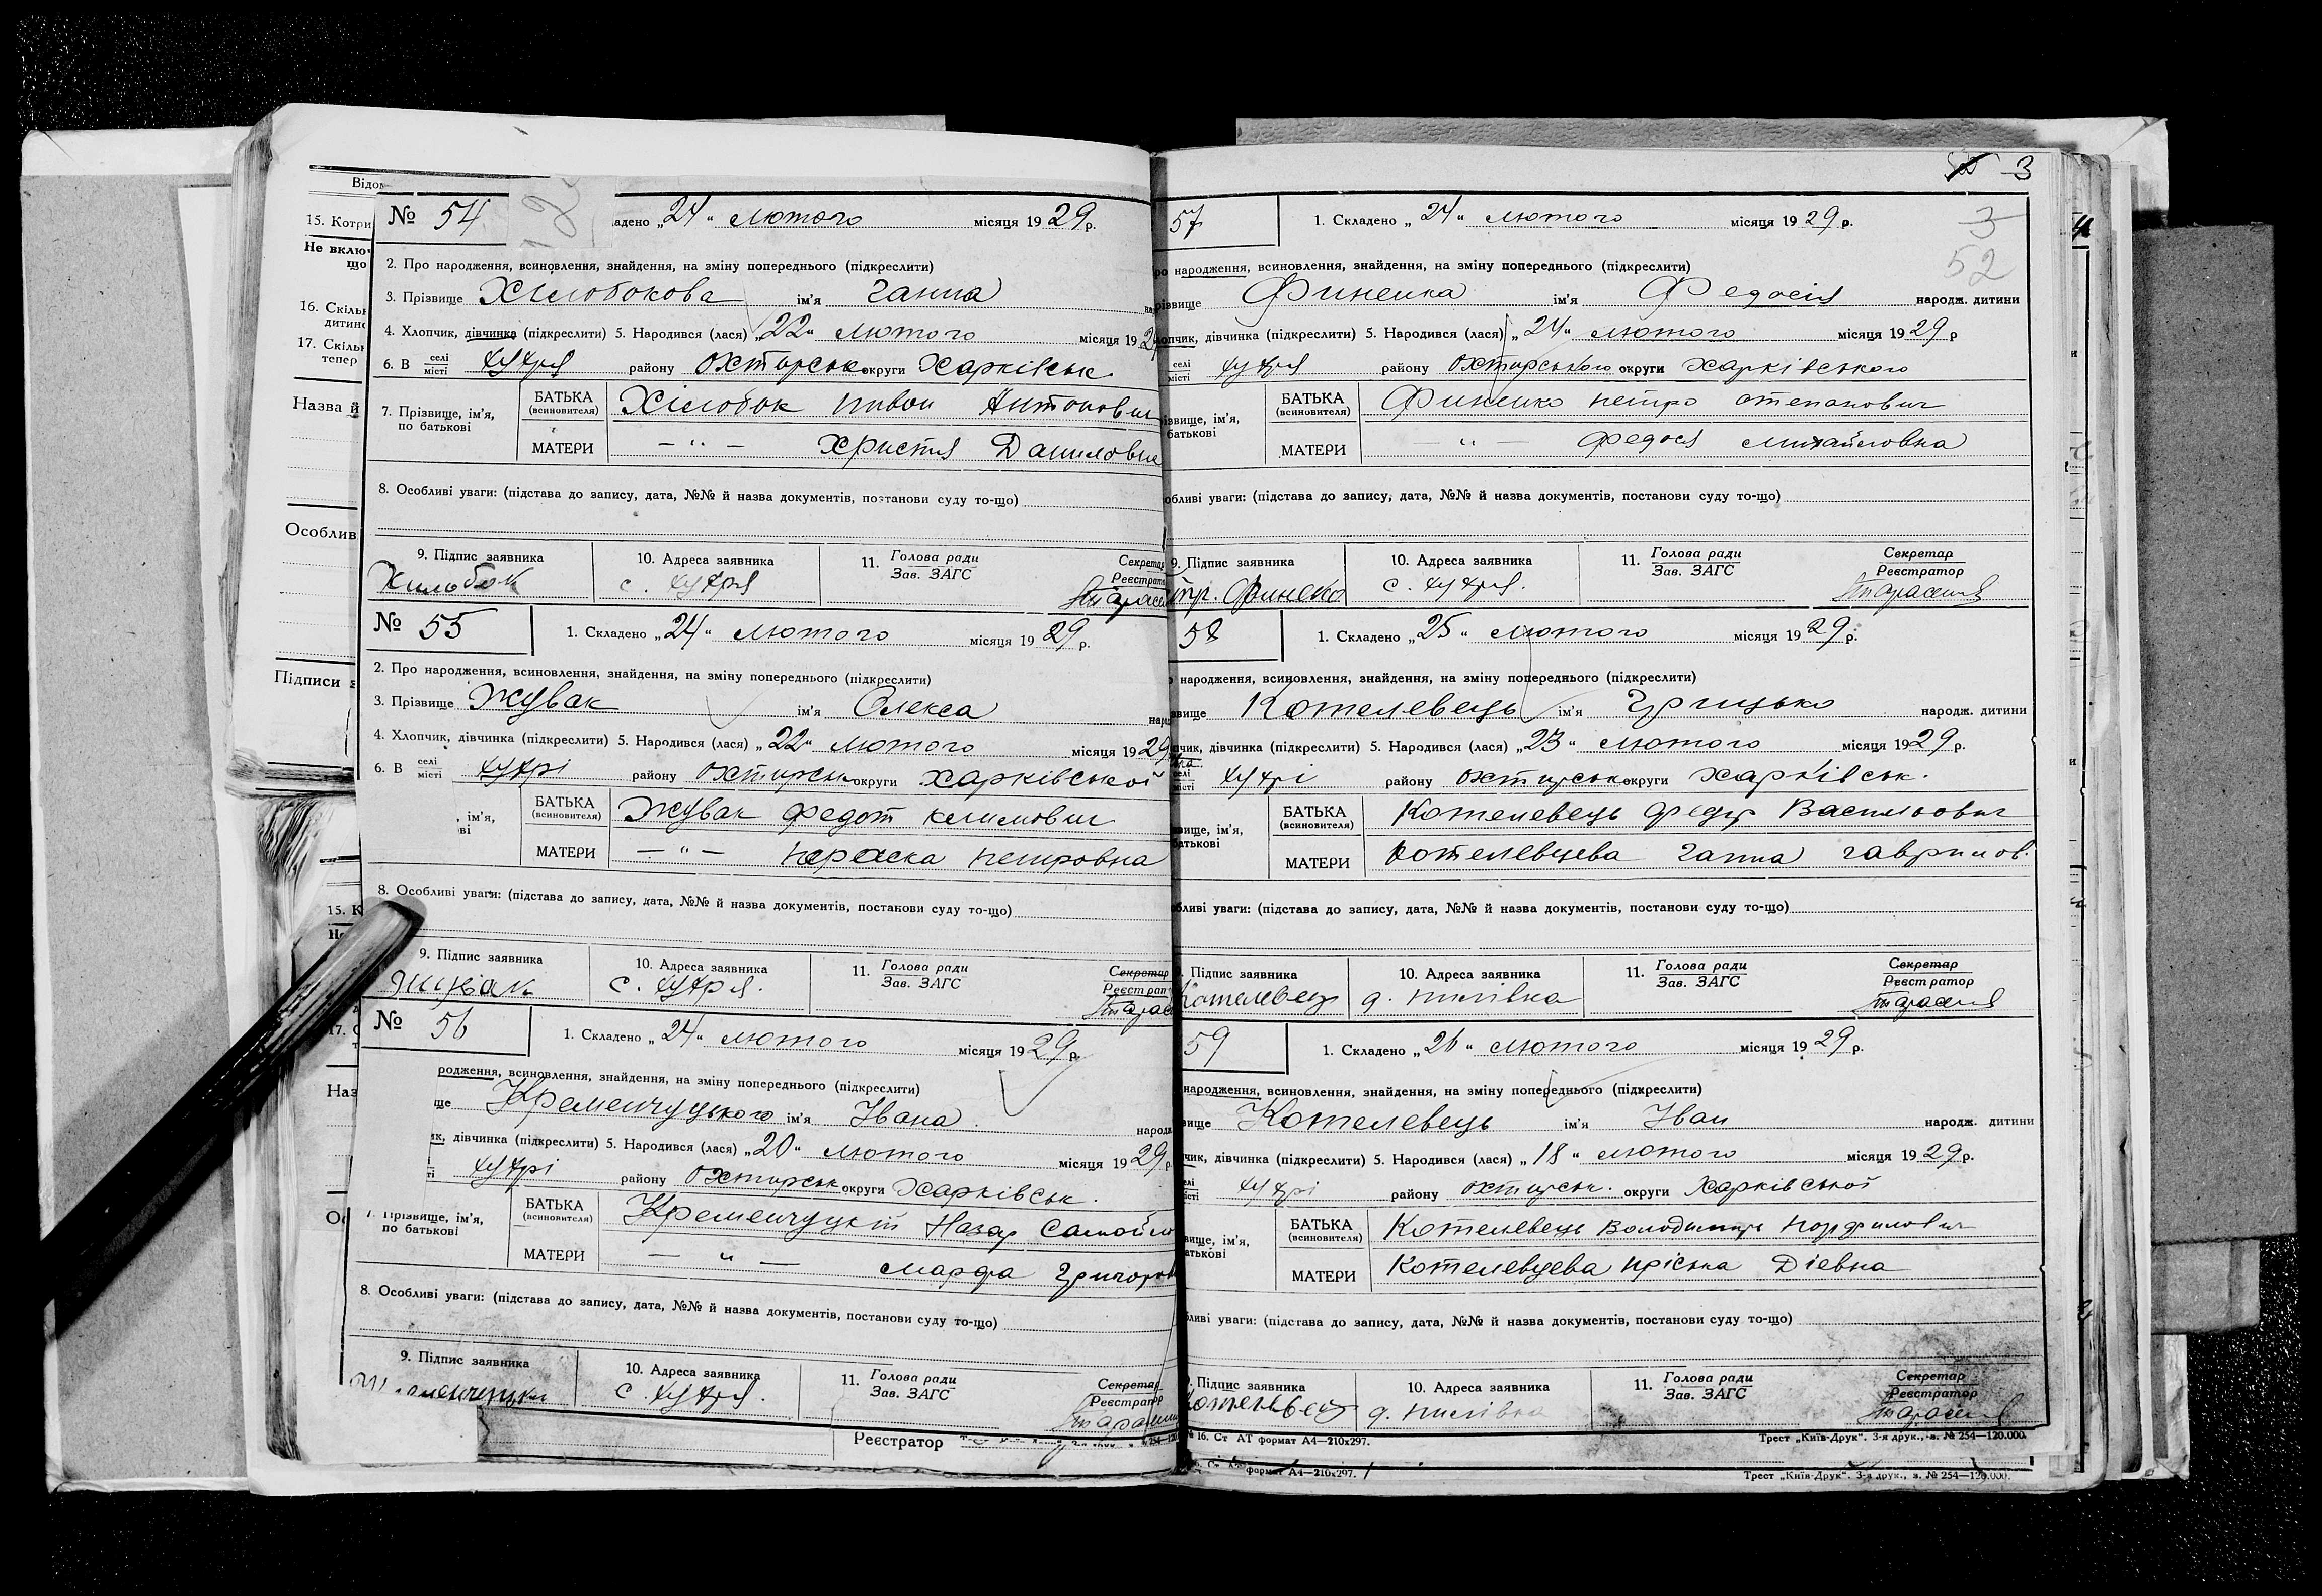 Відом
15. Котри
Не включ
що
16. Скільк
дитино
17. Скільк
тепер
Назва й
Особлив
Підписи з
№ 54
адено „24“ лютого місяця 1929 р.
2. Про народження, всиновлення, знайдення, на зміну попереднього (підкреслити)
3. Прізвище Хілобокова ім'я Ганна
4. Хлопчик, дівчинка (підкреслити) 5. Народився (лася) „22“ лютого місяця 192
6. В селі/місті Хухря району Охтирськ округи Харківськ
7. Прізвище, ім'я, по батькові
БАТЬКА (всиновителя) Хілобок Пивон Антонович
МАТЕРИ — „ — Христя Даниловна
8. Особливі уваги: (підстава до запису, дата, №№ й назва документів, постанови суду то-що)
9. Підпис заявника 10. Адреса заявника 11. Голова ради Зав. ЗАГС Секретар Реєстратор
Хильбок с. Хухря
№ 55
1. Складено „24“ лютого місяця 1929 р.
2. Про народження, всиновлення, знайдення, на зміну попереднього (підкреслити)
3. Прізвище Жувак ім'я Олекса
4. Хлопчик, дівчинка (підкреслити) 5. Народився (лася) „22“ лютого місяця 1929
6. В селі/місті Хухрі району Охтирськ округи Харківської
, ім'я,
ві
БАТЬКА (всиновителя) Жувак Федот Климович
МАТЕРИ — „ — Параска Петровна
8. Особливі уваги: (підстава до запису, дата, №№ й назва документів, постанови суду то-що)
9. Підпис заявника 10. Адреса заявника 11. Голова ради Зав. ЗАГС Секретар Реєстрат
с. Хухря.
№ 56
1. Складено „24“ лютого місяця 1929 р.
родження, всиновлення, знайдення, на зміну попереднього (підкреслити)
ще Кременчуцького ім'я Івана.
ик, дівчинка (підкреслити) 5. Народився (лася) „20“ лютого місяця 1929 р.
Хухрі району Охтирськ округи Харківськ.
7. Прізвище, ім'я, по батькові
БАТЬКА (всиновителя) Кременчуцкій Назар Самойло
МАТЕРИ — „ — Марфа Григоров
8. Особливі уваги: (підстава до запису, дата, №№ й назва документів, постанови суду то-що)
9. Підпис заявника 10. Адреса заявника 11. Голова ради Зав. ЗАГС Секретар Реєстратор
с. Хухря.
Реєстратор
3
3
52
57
1. Складено „24“ лютого місяця 1929 р.
ро народження, всиновлення, знайдення, на зміну попереднього (підкреслити)
різвище Финенка ім'я Федосія народж. дитини
лопчик, дівчинка (підкреслити) 5. Народився (лася) „24“ лютого місяця 1929 р
селі/місті Хухря району Охтирського округи Харківського
різвище, ім'я, батькові
БАТЬКА (всиновителя) Финенко Петро Степанович
МАТЕРИ — „ — Федося Михайловна
обливі уваги: (підстава до запису, дата, №№ й назва документів, постанови суду то-що)
9. Підпис заявника 10. Адреса заявника 11. Голова ради Зав. ЗАГС Секретар Реєстратор
с. Хухря.
58
1. Складено „25“ лютого місяця 1929 р.
народження, всиновлення, знайдення, на зміну попереднього (підкреслити)
звище Котелевець ім'я Грицько народж. дитини
пчик, дівчинка (підкреслити) 5. Народився (лася) „23“ лютого місяця 1929 р.
селі/місті Хухрі району Охтирськ округи Харківськ.
звище, ім'я, батькові
БАТЬКА (всиновителя) Котелевець Федір Васильович
МАТЕРИ Котелевцева Ганна Гаврилов.
бливі уваги: (підстава до запису, дата, №№ й назва документів, постанови суду то-що)
Підпис заявника 10. Адреса заявника 11. Голова ради Зав. ЗАГС Секретар Реєстратор
Котелевець д. Пилівка
59
1. Складено „26“ лютого місяця 1929 р.
народження, всиновлення, знайдення, на зміну попереднього (підкреслити)
вище Котелевець ім'я Іван народж. дитини
чик, дівчинка (підкреслити) 5. Народився (лася) „18“ лютого місяця 1929 р.
Хухрі району Охтирськ. округи Харківської
вище, ім'я, атькові
БАТЬКА (всиновителя) Котелевець Володимир
МАТЕРИ Котелевцева Пріська Діевна
ливі уваги: (підстава до запису, дата, №№ й назва документів, постанови суду то-що)
Підпис заявника 10. Адреса заявника 11. Голова ради Зав. ЗАГС Секретар Реєстратор
д. Пилівка
№ 16. Ст АТ формат А4—210х297. Трест „Київ-Друк“. 3-я друк., з. № 254—120.000.
формат А4—210х297. Трест „Київ-Друк“. 3-я друк., з. № 254—120.000.